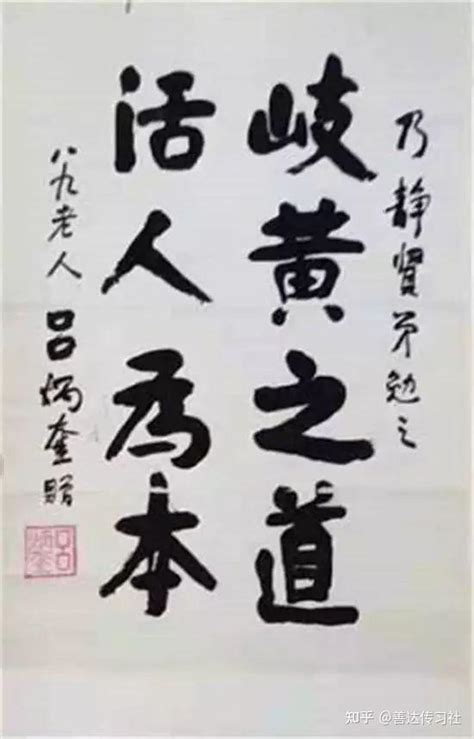 乃静贤弟勉之
岐黄之道
活人為本
八九老人吕炳奎赠
吕炳奎
知乎 @善达传习社